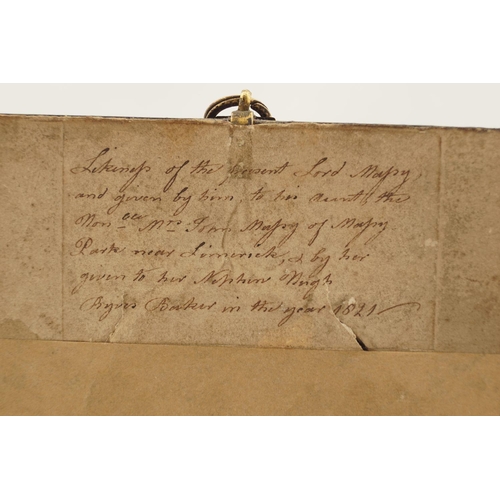 Likeness of the present Lord Massy,
and given by him to his Aunt the
Hon.ble Mrs Massy of Massy
Park near Limerick, & by her
given to her Nephew Hugh
Ryves Baker in the year 1821